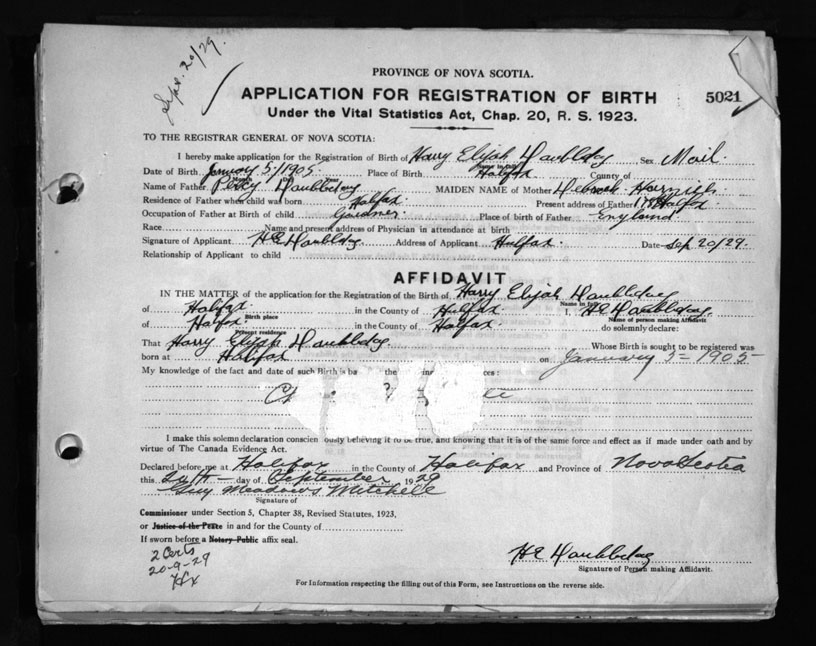 Sept. 20/29.
PROVINCE OF NOVA SCOTIA.
APPLICATION FOR REGISTRATION OF BIRTH
5021
Under the Vital Statistics Act, Chap. 20, R. S. 1923.
TO THE REGISTRAR GENERAL OF NOVA SCOTIA:
I hereby make application for the Registration of Birth of Harry Elijah Doubleday Sex Mail.
Name in full
Date of Birth January 5/1905 Place of Birth Halifax County of
Month Day Year
Name of Father Percy Doubleday MAIDEN NAME of Mother Deborah
Residence of Father when child was born Halifax. Present address of Father Halfax.
Occupation of Father at Birth of child Gardner. Place of birth of Father England
Race Name and present address of Physician in attendance at birth
Signature of Applicant H E Doubleday Address of Applicant Halifax. Date Sep 20/29.
Relationship of Applicant to child
AFFIDAVIT
IN THE MATTER of the application for the Registration of the Birth of Harry Elijah Doubleday
Name in full
of Halifax. in the County of Halifax. I, H E Doubleday.
Birth place Name of person making Affidavit
of Halfax in the County of Halifax. do solemnly declare:
Present residence
That Harry Elijah Doubleday. Whose Birth is sought to be registered was
born at Halifax on January 5= 1905-
My knowledge of the fact and date of such Birth is ba the ing ces:
I make this solemn declaration conscien ously believing it to be true, and knowing that it is of the same force and effect as if made under oath and by
virtue of The Canada Evidence Act.
Declared before me at Halifax in the County of Halifax and Province of Nova Scotia
this 20th day of September 1929
Guy Meadows Mitchell
Signature of
Commissioner under Section 5, Chapter 38, Revised Statutes, 1923,
or Justice of the Peace in and for the County of
If sworn before a Notary Public affix seal.
2 Certs
20-9-29
Hx
H E Doubleday
Signature of Person making Affidavit.
For Information respecting the filling out of this Form, see Instructions on the reverse side.